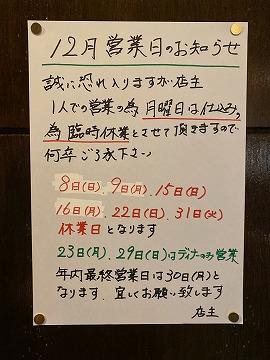 12月営業日のお知らせ
誠に恐れ入りますが店主
1人での営業の為 月曜日は仕込みの
為 臨時休業とさせて頂きますので
何卒ご了承下さい
8日(日)、9日(月)、15日(日)
16日(月)、22日(日)、31日(火)
休業日となります
23日(月)、29日(日)はディナーのみ営業
年内最終営業日は30日(月)と
なります、宜しくお願い致します
店主